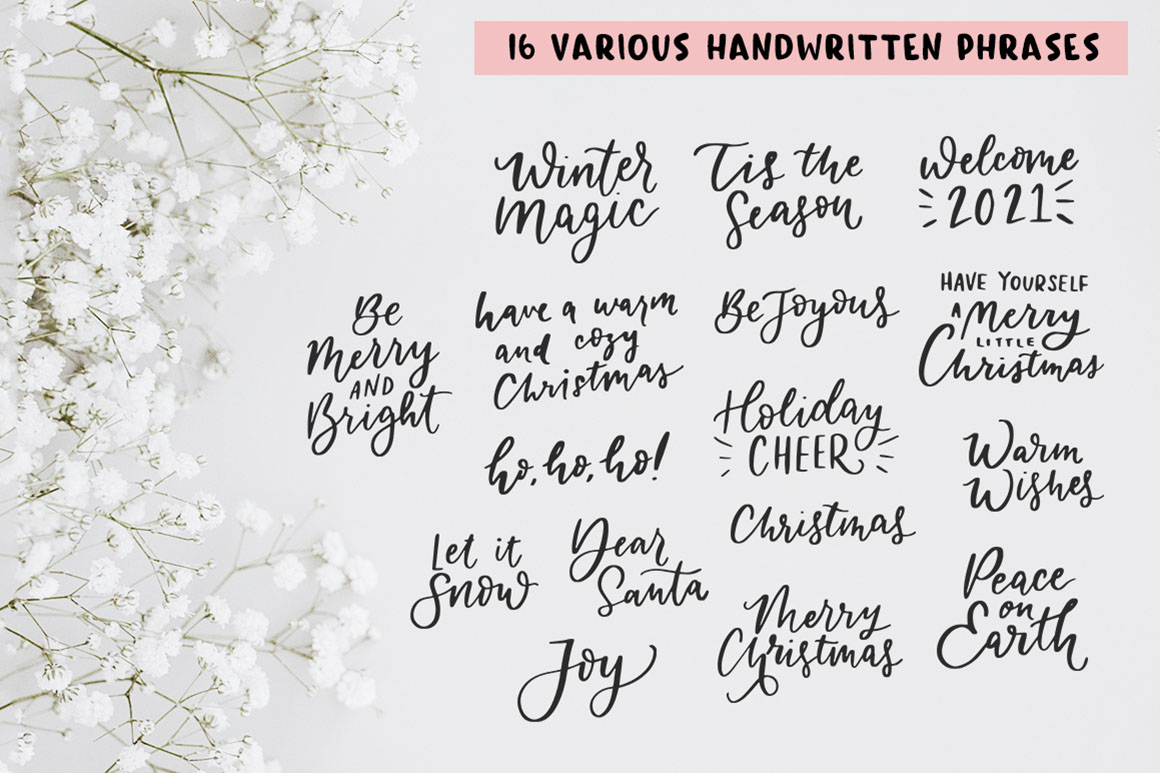 16 VARIOUS HANDWRITTEN PHRASES
Winter
Magic
Tis the
Season
Welcome
2021
Be
Merry
AND
Bright
have a warm
and cozy
Christmas
Be Joyous
HAVE YOURSELF
A Merry
LITTLE
Christmas
ho, ho, ho!
Holiday
CHEER
Warm
Wishes
Let it
Snow
Dear
Santa
Christmas
Peace
on
Earth
Joy
Merry
Christmas